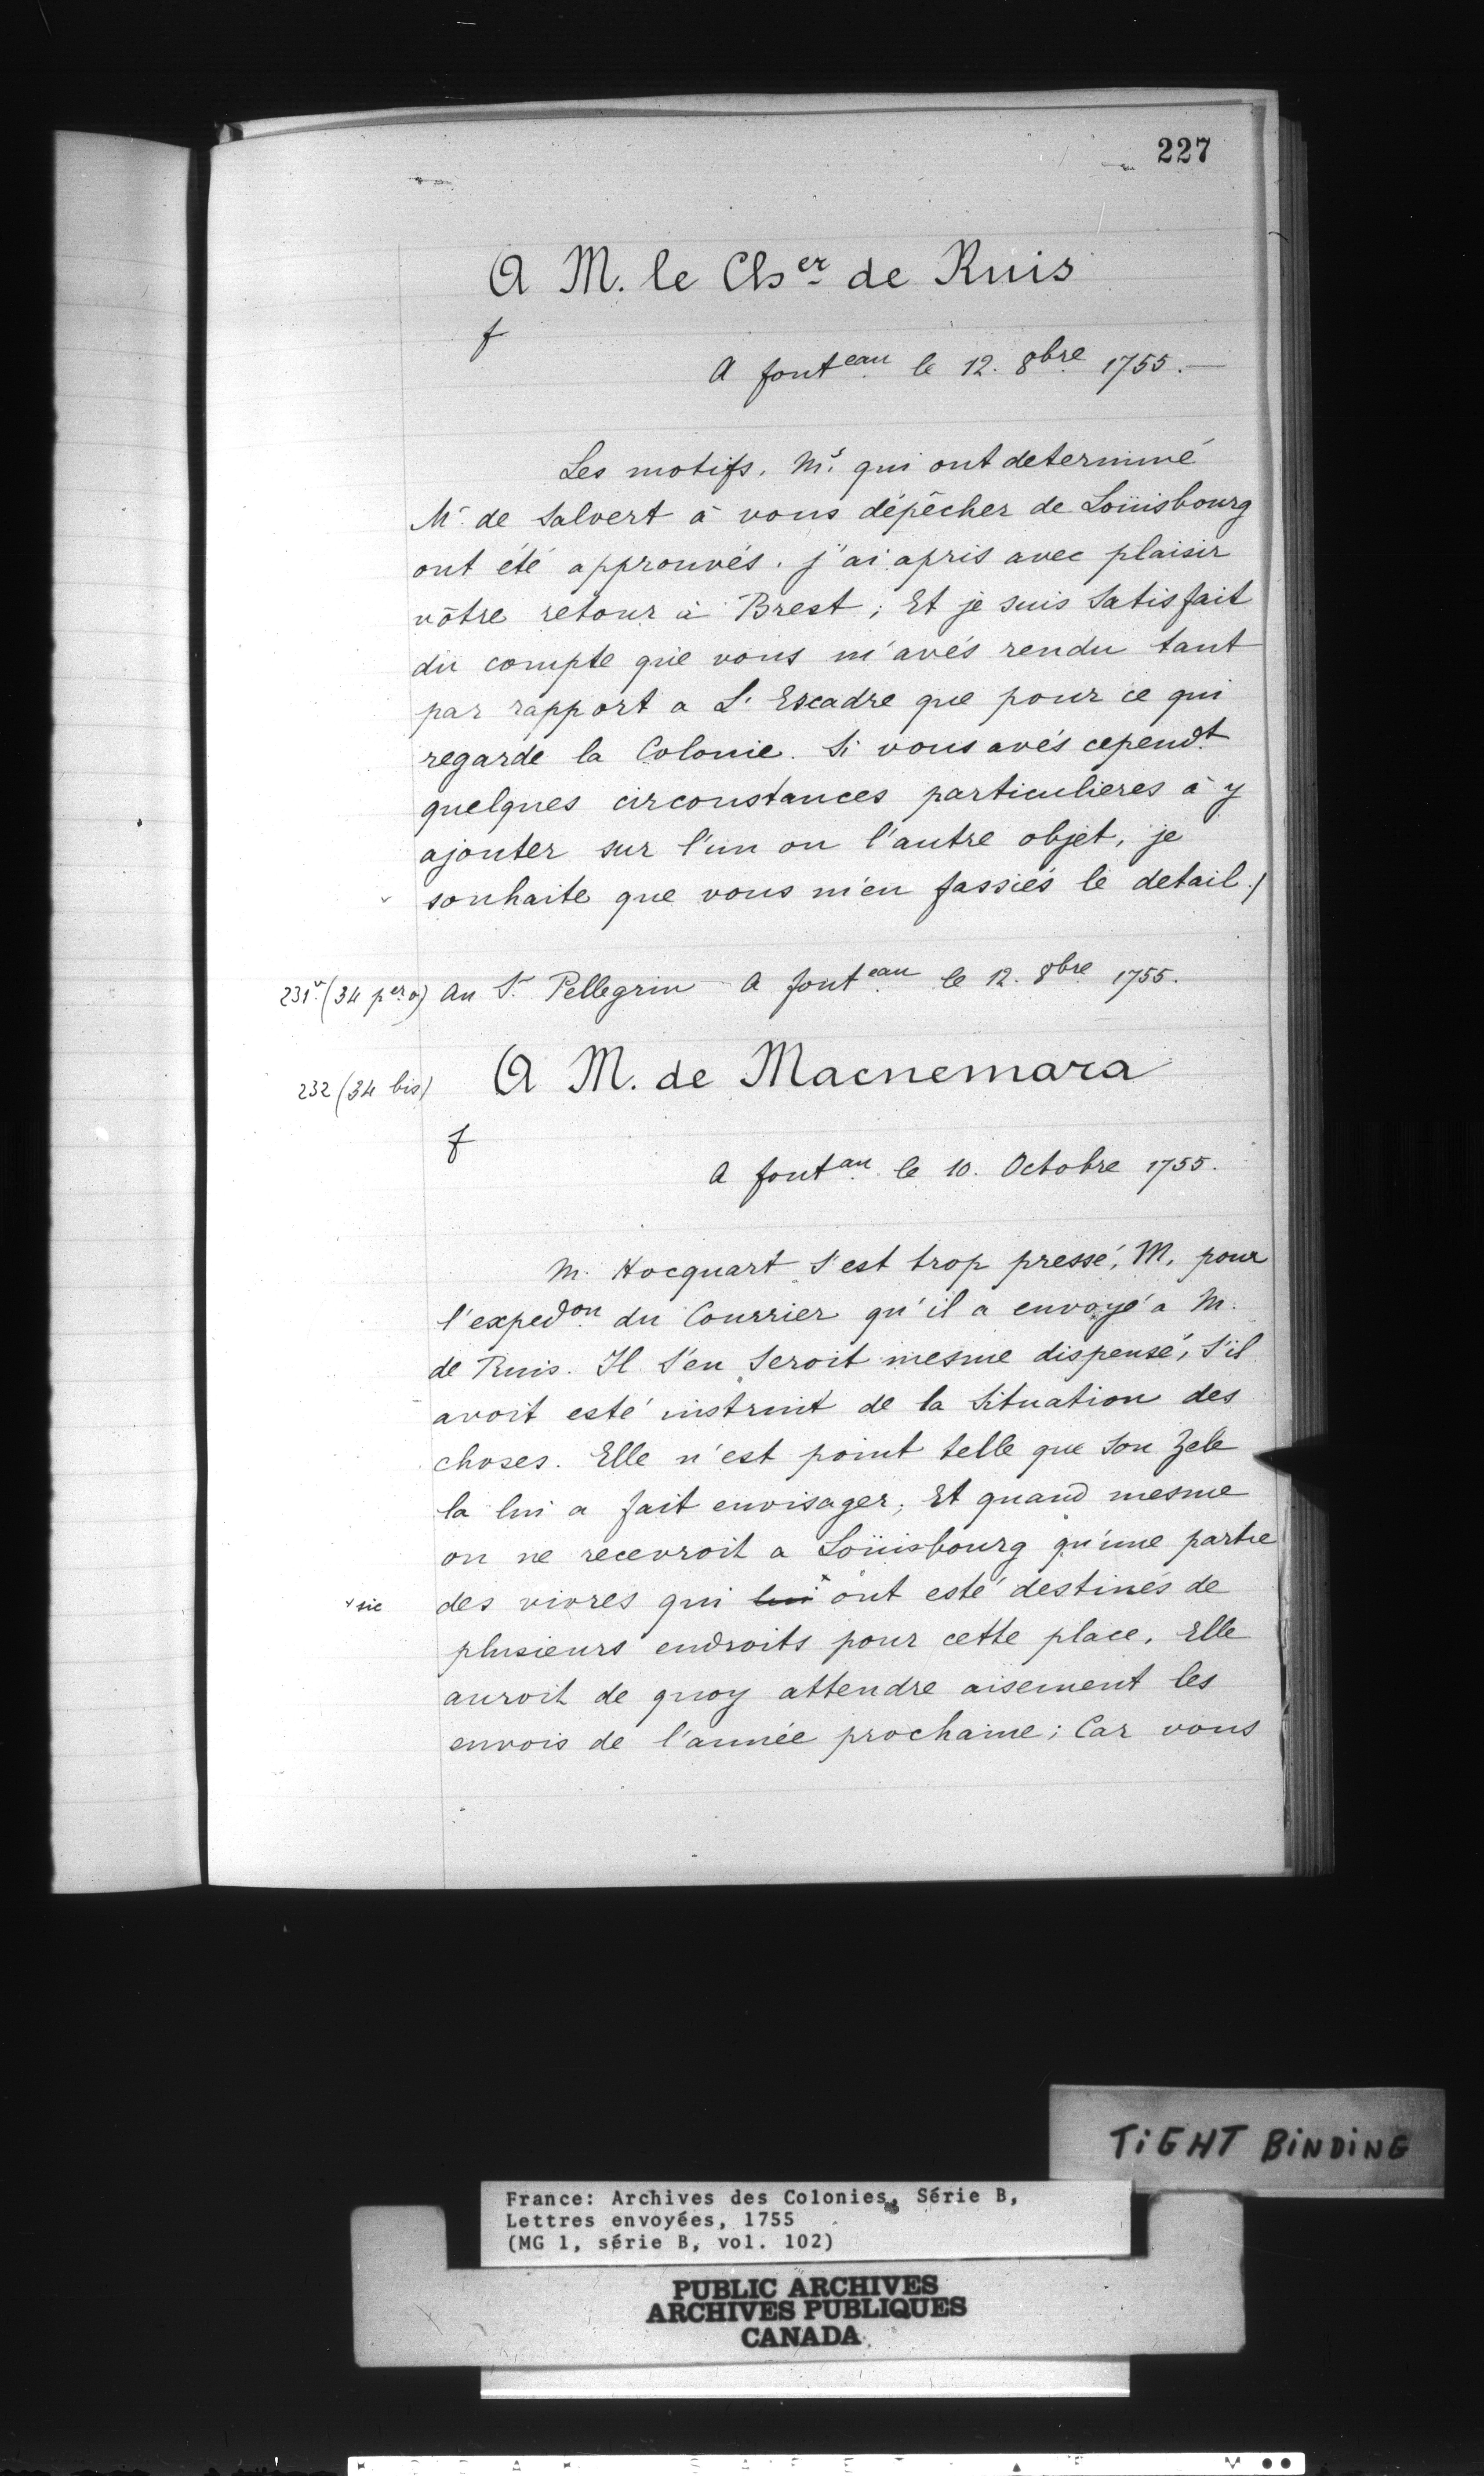 227
A M. le Ch.er de Ruis
f
A font.eau le 12. 8bre 1755. —
Les motifs, M.s qui ont determiné
Mr. de Salvert à vous dépêcher de Loüisbourg
ont été approuvés. j'ai apris avec plaisir
vôtre retour à Brest; Et je suis Satisfait
du compte que vous m'avés rendu tant
par rapport a L'Escadre que pour ce qui
regarde la Colonie. Si vous avés cepend.t
quelques circonstances particulieres à y
ajouter sur l'un ou l'autre objet, je
souhaite que vous m'en fassiés le detail ./
231v. (34 per v) Au Sr. Pellegrin A font.eau le 12. 8bre 1755.
232 (34 bis) A M. de Macnemara
f
A font.au le 10. Octobre 1755.
M. Hocquart s'est trop pressé, M, pour
l'exped.on du Courrier qu'il a envoyé a M.
de Ruis. Il S'en Seroit mesme dispensé, S'il
avoit esté instruit de la Situation des
choses. Elle n'est point telle que Son Zele
la lui a fait envisager; Et quand mesme
on ne recevroit a Loüisbourg qu'une partie
v sic des vivres qui lui x ont esté destinés de
plusieurs endroits pour cette place, Elle
auroit de quoy attendre aisement les
envois de l'année prochaine; Car vous
TiGHT BiNDiNG
France: Archives des Colonies, Série B,
Lettres envoyées, 1755
(MG 1, série B, vol. 102)
PUBLIC ARCHIVES
ARCHIVES PUBLIQUES
CANADA